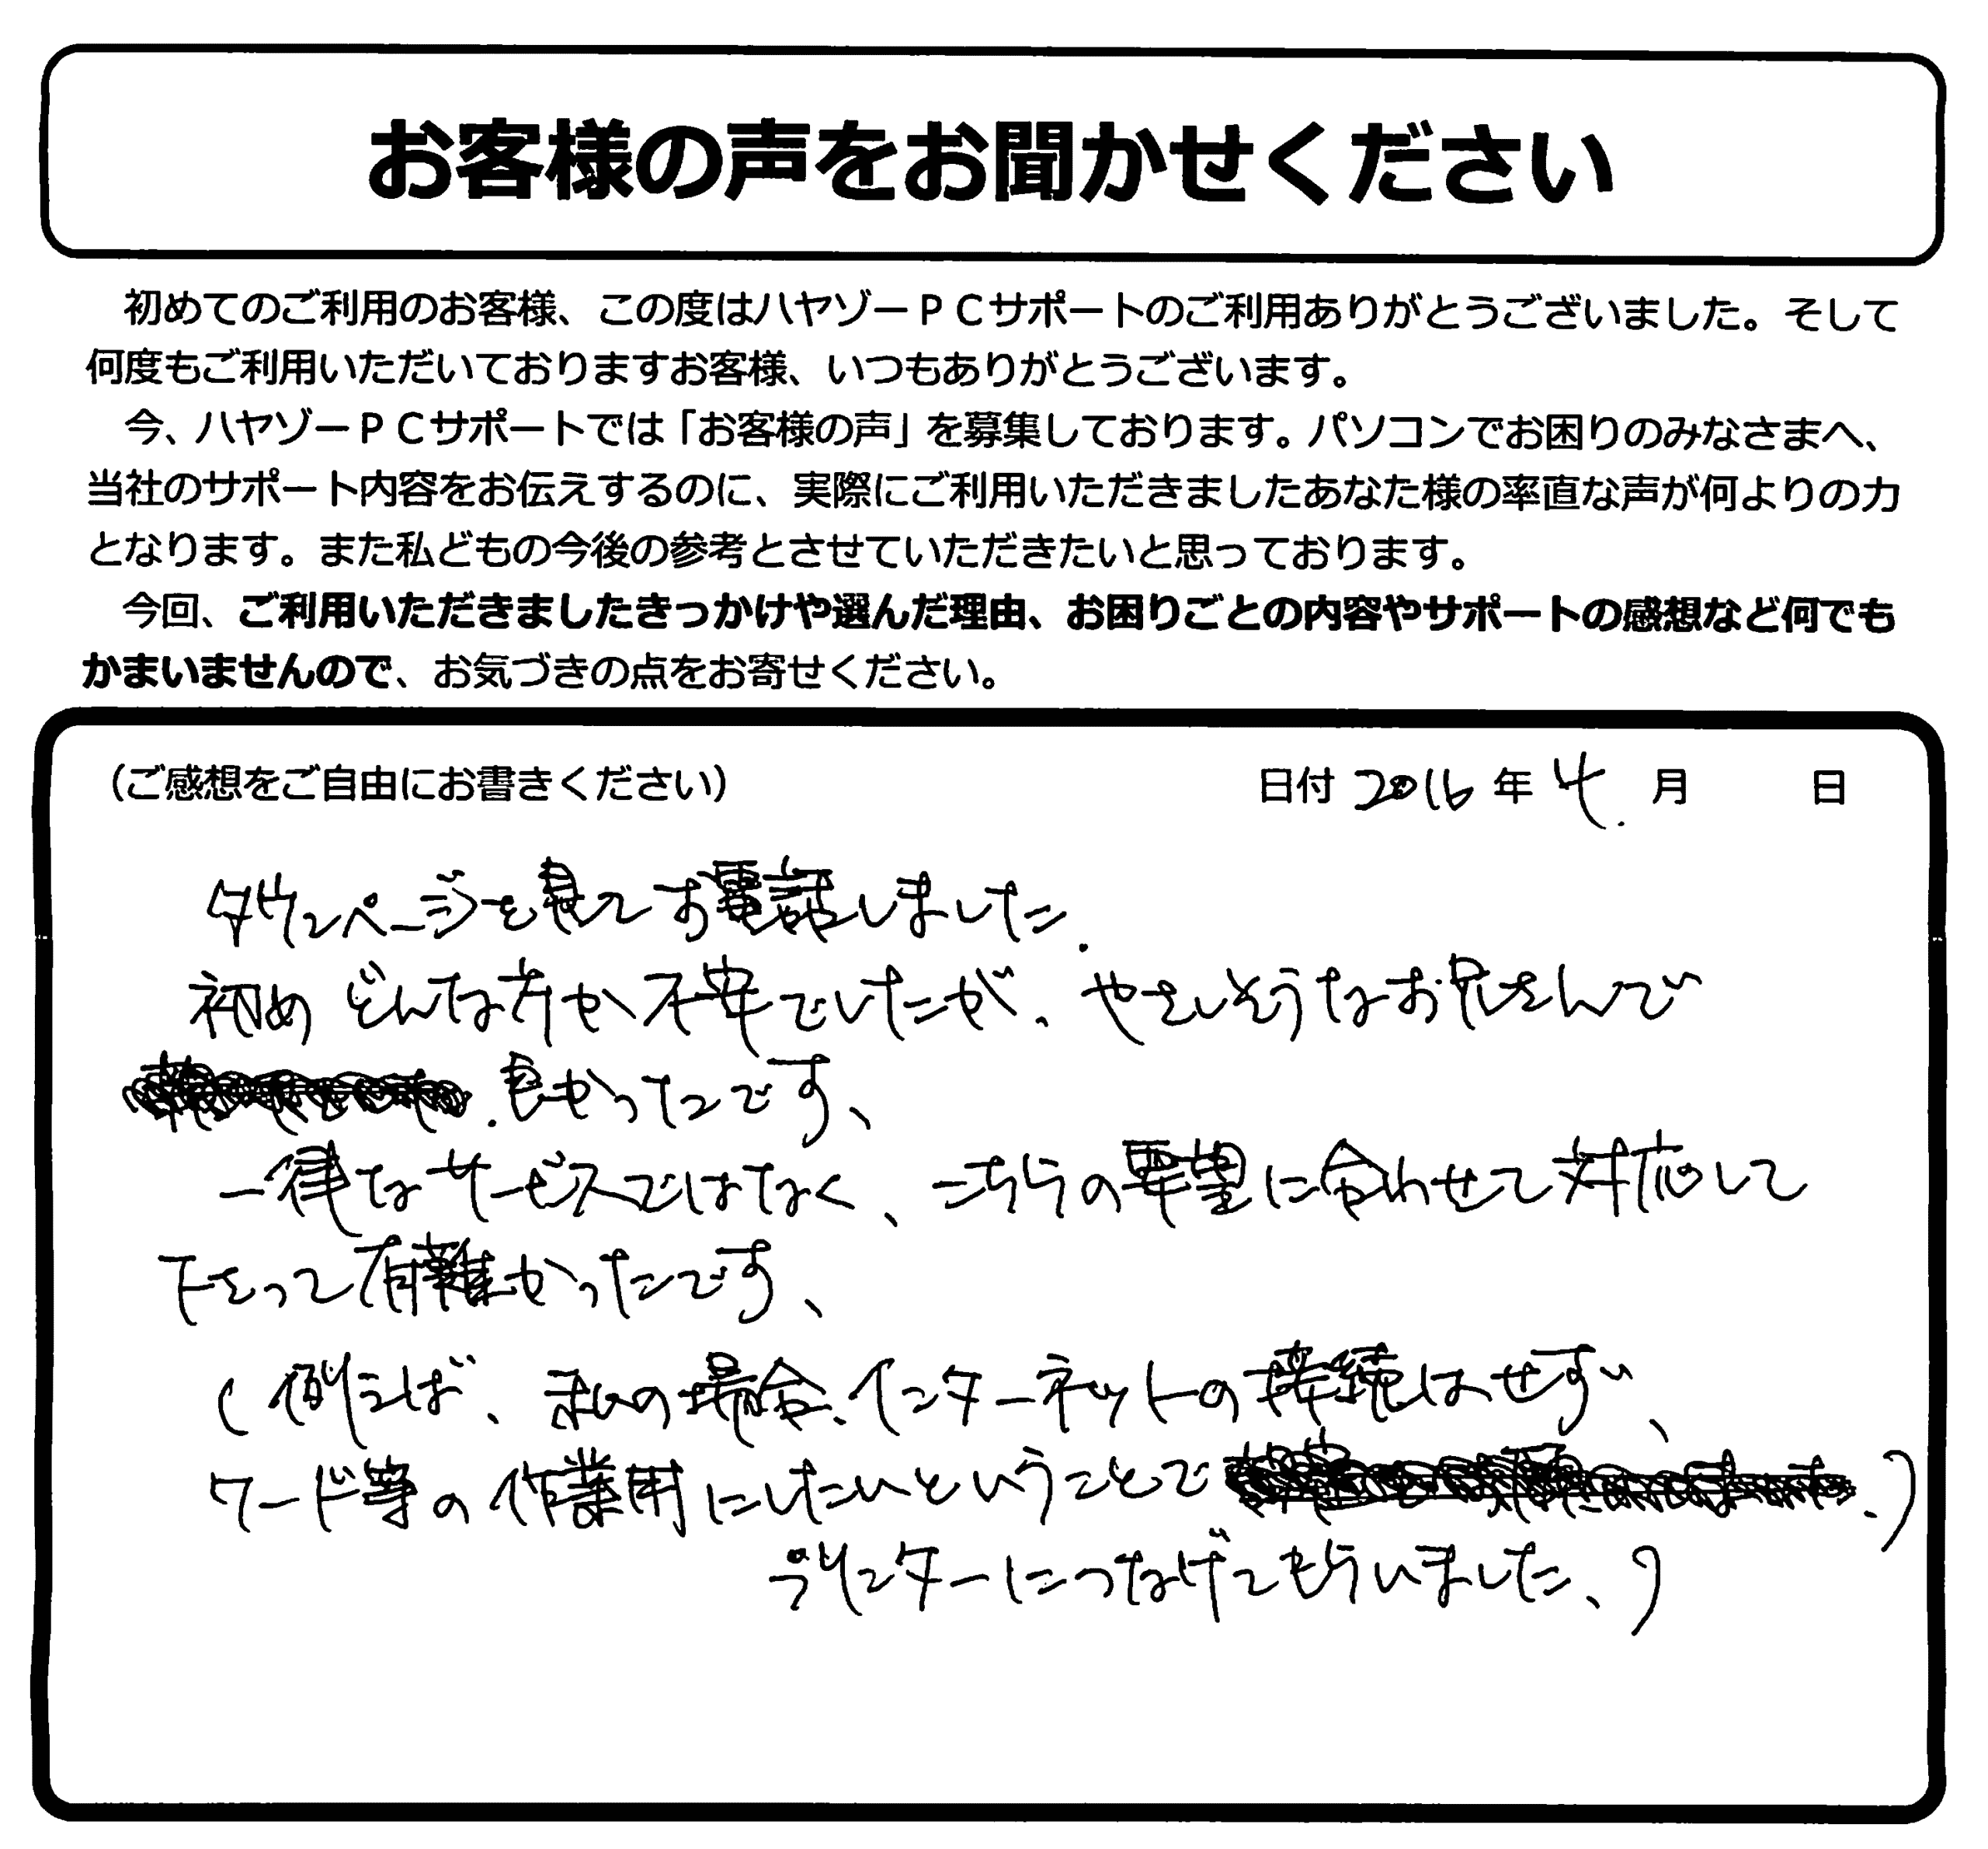 お客様の声をお聞かせください
初めてのご利用のお客様、この度はハヤゾーPCサポートのご利用ありがとうございました。そして
何度もご利用いただいておりますお客様、いつもありがとうございます。
今、ハヤゾーPCサポートでは「お客様の声」を募集しております。パソコンでお困りのみなさまへ、
当社のサポート内容をお伝えするのに、実際にご利用いただきましたあなた様の率直な声が何よりの力
となります。また私どもの今後の参考とさせていただきたいと思っております。
今回、ご利用いただきましたきっかけや選んだ理由、お困りごとの内容やサポートの感想など何でも
かまいませんので、お気づきの点をお寄せください。
（ご感想をご自由にお書きください） 日付 2016 年 4. 月 日
タウンページを見てお電話しました.
初め どんな方か不安でしたが、やさしそうなお兄さんで
良かったです、
一律なサービスではなく、こちらの要望に合わせて対応して
下さって有難かったです、
（例えば、私の場合、インターネットの接続はせず、
ワード等の作業用にしたいということで .）
プリンターにつなげてもらいました、）